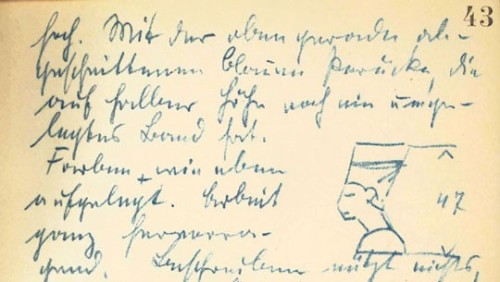 43
hoch. Mit der oben gerade ab-
geschnittenen blauen Perücke, die
auf halber Höhe noch ein umge-
legtes Band hat.
Farben, wie eben
aufgelegt. Arbeit
ganz hervorra-
gend. Beschreiben nützt nichts,
47